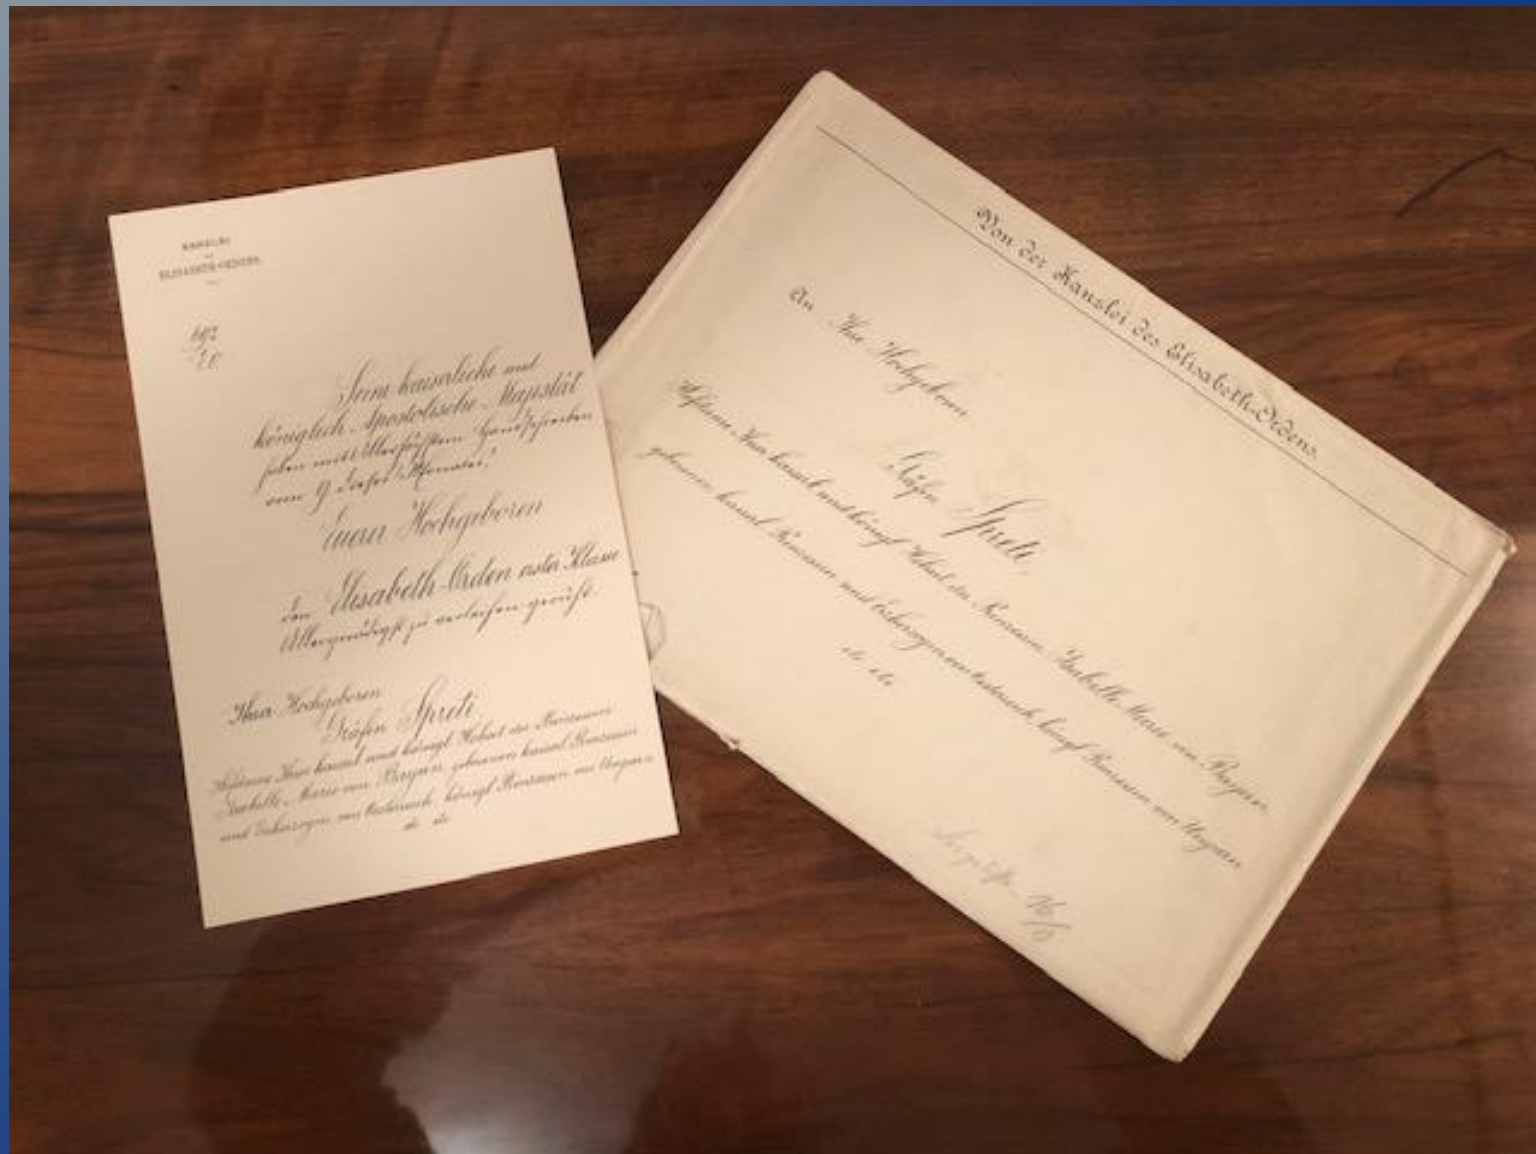 KANZLEI
DES
ELISABETH-ORDENS.
Seine kaiserliche und
königlich Apostolische Majestät
haben mit Allerhöchstem Handschreiben
vom 9. dieses Monates,
Euerer Hochgeboren
den Elisabeth-Orden erster Klasse
Allergnädigst zu verleihen geruht.
Ihrer Hochgeboren
Gräfin Spreti
Hofdame Ihrer kaiserl und königl Hoheit der Prinzessin
Isabelle Marie von Bayern, geborenen kaiserl Prinzessin
und Erherzogin von Oesterreich, königl Prinzessin von Ungarn
etc etc
Von der Kanzlei des Elisabeth-Ordens.
An Ihre Hochgeboren
Gräfin Spreti,
Hofdame Ihrer kaiserl und königl Hoheit der Prinzessin Isabelle Marie von Bayern,
geborenen kaiserl Prinzessin und Erzherzogin von Oesterreich, königl Prinzessin von Ungarn
etc etc